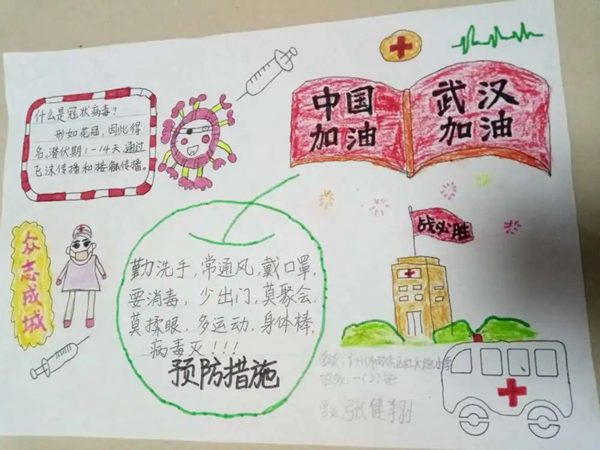 什么是冠状病毒?
形如花冠,因此得
名。潜伏期:1-14天,通过
飞沫传播和接触传播。
中国
加油
武汉
加油
众志成城
战必胜
勤洗手,常通风,戴口罩,
要消毒,少出门,莫聚会,
莫揉眼,多运动,身体棒,
病毒灭!!!
预防措施
张健翔